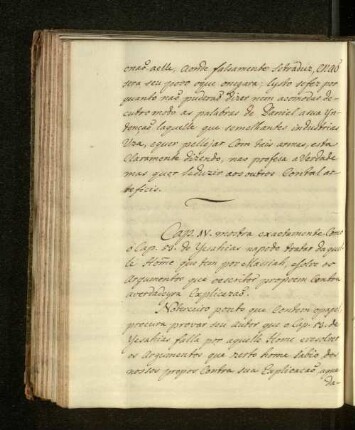 e naõ aelle, aonde falsamente setraduz, e naõ
sera seu povo o que negara: e isto se fez por
quanto naõ puderaõ dizer nem acomodar de
outro moto as palabras de Daniel a sua Yn
tençaõ, e aquelle que semelhantes industrias
Uza, e quer pellejar Com tais armas, esta
Claramente dizendo, naõ profesa a Verdade
mas quer seduzir aos outros Com tal ar-
teficio.
Cap. IV. mostra exactamente Como
o Cap. 53. de Yesahias naõ pode tratar daquel
le Home que tem por Massiah, e solve os
Argumentos que o escritor propoem Contra
a verdadeyra Explicazaõ.
No terceiro ponto que Contem o papel
procura provar seu autor que o Cap. 53. de
Yesahias falla por aquelle Home, e resolve
os Argumentos que nesta forma sabio dos
nossos propos Contra sua Explicacaõ, a qua
da-